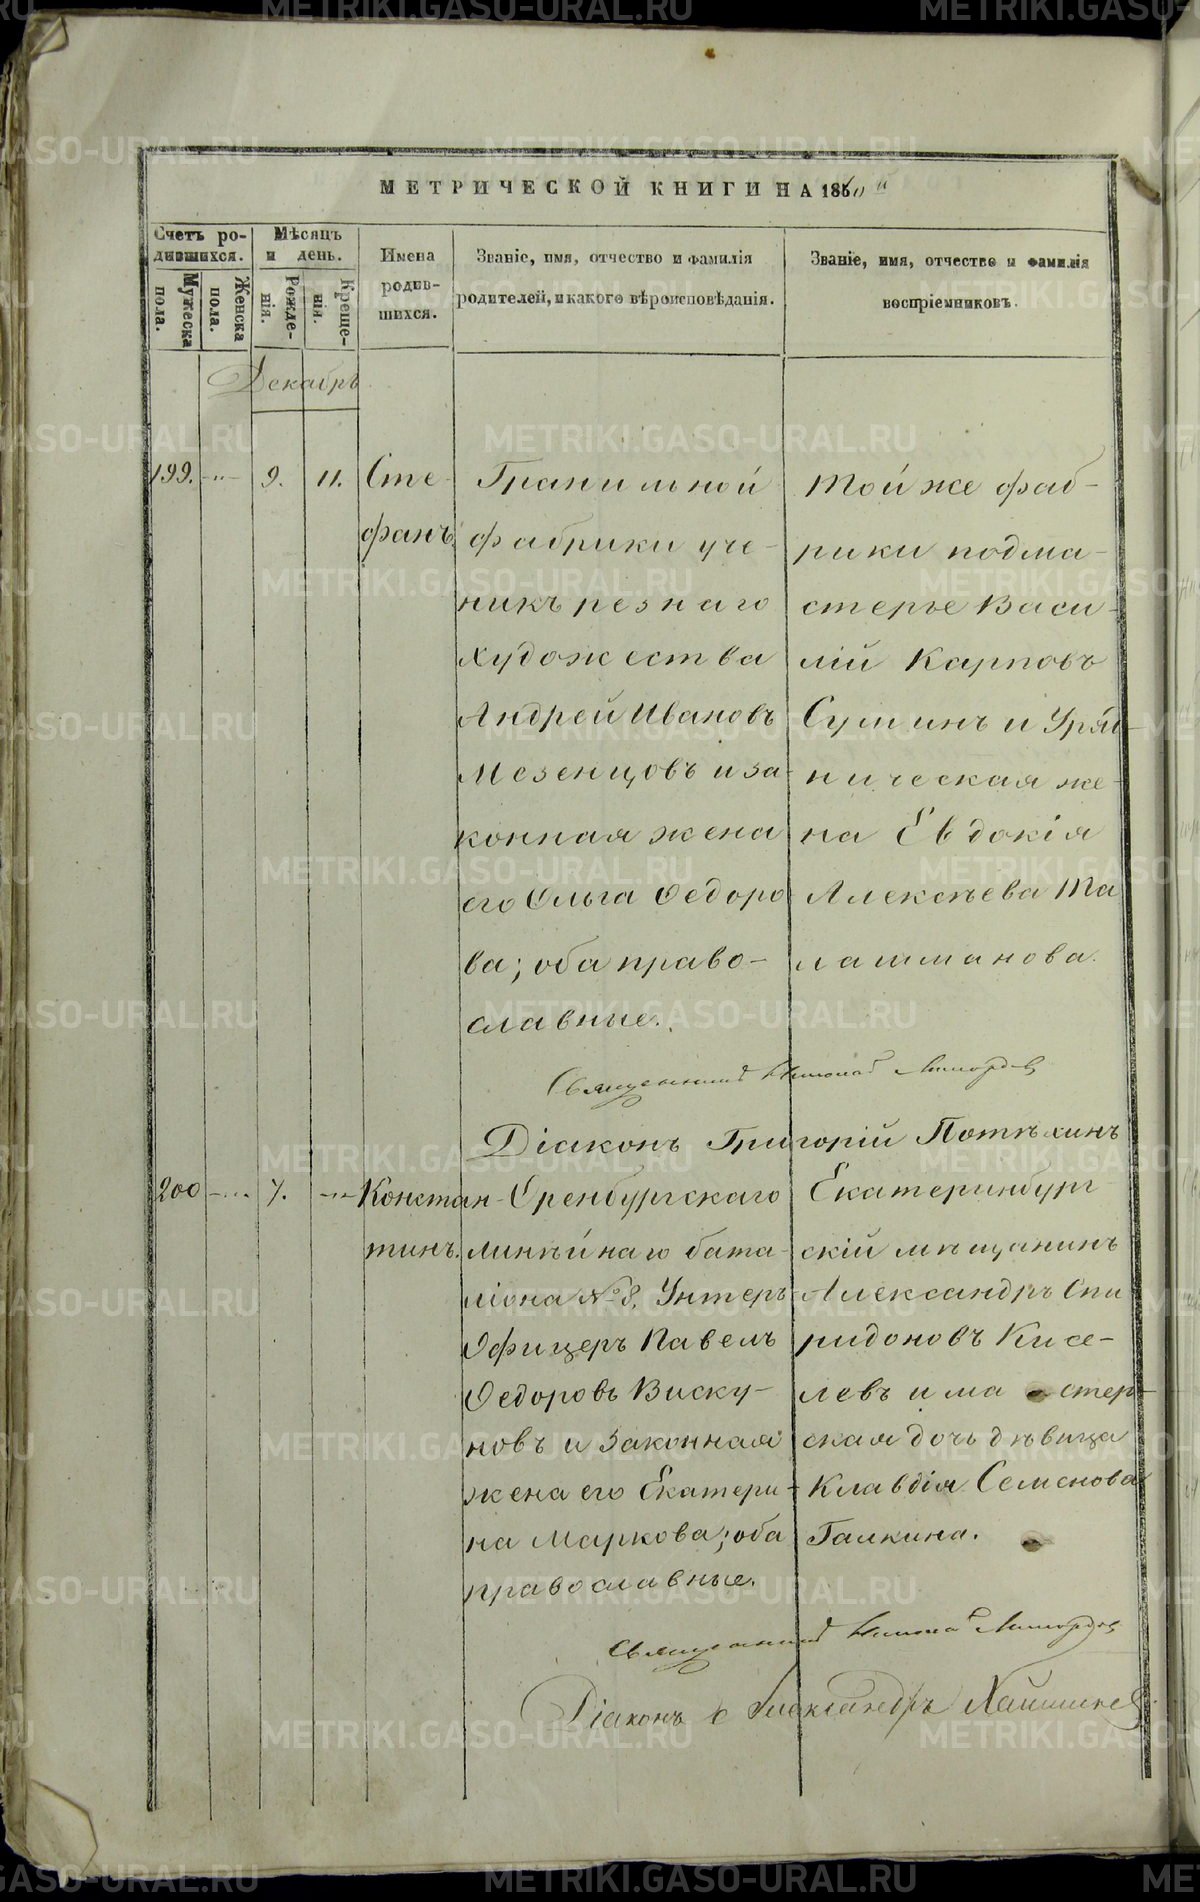 МЕТРИЧЕСКОЙ КНИГИ НА 1860 й
Счетъ родившихся.
Мужеска пола.
Женска пола.
Мѣсяцъ и день.
Рожденія.
Крещенія.
Имена родившихся.
Званіе, имя, отчество и фамилія
родителей, и какого вѣроисповѣданія.
Званіе, имя, отчество и фамилія
воспріемниковъ.
Декабрь
199. -"- 9. 11.
Сте-
фанъ.
Гранильной
фабрики уче-
никъ резнаго
художества
Андрей Ивановъ
Мезенцовъ и за-
конная жена
его Ольга Ѳедоро
ва; оба право-
славные.
Той же фаб-
рики подма-
стерье Васи-
лій Карповъ
Суминъ и Уряд-
ническая же-
на Евдокія
Алексѣева Та
лашманова.
Священникъ Николай
Діаконъ Григорій Потѣхинъ
200 -"- 7. -"-
Констан-
тинъ.
Оренбургскаго
линѣйнаго бата-
ліона № 8. Унтеръ-
Офицеръ Павелъ
Ѳедоровъ Виску-
новъ и законная
жена его Екатери-
на Маркова; оба
православные.
Екатеринбург-
скій мѣщанинъ
Александръ Спи
ридоновъ Кисе-
левъ и мастер-
ская дочь дѣвица
Клавдія Семенова
Галкина.
Священникъ Николай
Діаконъ Александръ
METRIKI.GASO-URAL.RU